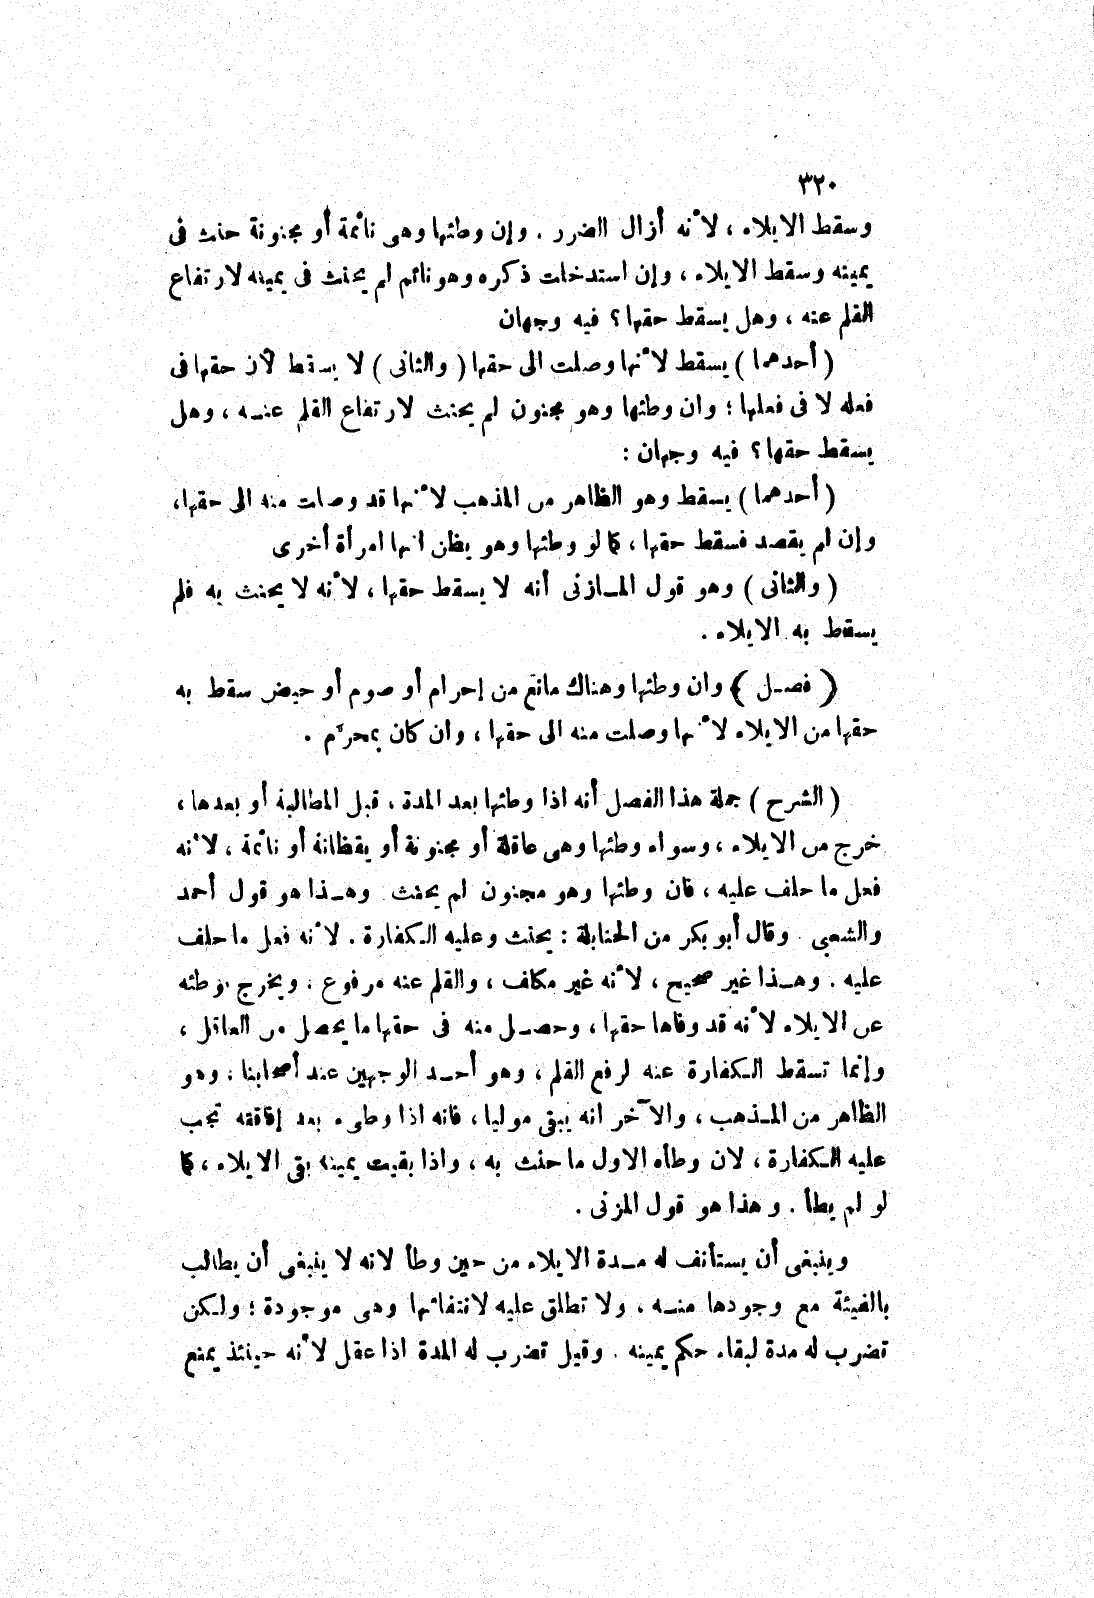 ٣٢٠
وسقط الايلاء ، لأنه أزال الضرر . وإن وطئها وهى نائمة أو مجنونة حنث فى
يمينه وسقط الايلاء ، وإن استدخلت ذكره وهو نائم لم يحنث فى يمينه لارتفاع
القلم عنه ، وهل يسقط حقها ؟ فيه وجهان
( أحدهما ) يسقط لأنها وصلت الى حقها ( والثانى ) لا يسقط لأن حقها فى
فعله لا فى فعلها ؛ وان وطئها وهو مجنون لم يحنث لارتفاع القلم عنـه ، وهل
يسقط حقها ؟ فيه وجهان :
( أحدهما ) يسقط وهو الظاهر من المذهب لأنها قد وصلت منه الى حقها ،
وإن لم يقصد فسقط حقها ، كما لو وطئها وهو يظن انها امرأة أخرى
( والثانى ) وهو قول المـازنى أنه لا يسقط حقها ، لأنه لا يحنث به فلم
يسقط به الايلاء .
( فصـل ) وان وطئها وهناك مانع من إحرام أو صوم أو حيض سقط به
حقها من الايلاء لأنها وصلت منه الى حقها ، وان كان بمحرّم .
( الشرح ) جملة هذا الفصل أنه اذا وطئها بعد المدة ، قبل المطالبة أو بعدها ،
خرج من الايلاء ، وسواء وطئها وهى عاقلة أو مجنونة أو يقظانة أو نائمة ، لأنه
فعل ما حلف عليه ، فان وطئها وهو مجنون لم يحنث وهـذا هو قول أحمد
والشعبى . وقال أبو بكر من الحنابلة : يحنث وعليه الـكفارة . لأنه فعل ما حلف
عليه . وهـذا غير صحيح ، لأنه غير مكلف ، والقلم عنه مرفوع . ويخرج بوطئه
عن الايلاء لأنه قد وفاها حقها ، وحصـل منه فى حقها ما يحصل من العاقل ،
وإنما تسقط الـكفارة عنه لرفع القلم ، وهو أحـد الوجهين عند أصحابنا ، وهو
الظاهر من المـذهب ، والآخر انه يبقى موليا ، فانه اذا وطىء بعد إفاقته تجب
عليه الـكفارة ، لان وطأه الاول ما حنث به ، واذا بقيت يمينه بقى الايلاء ، كما
لو لم يطأ . وهذا هو قول المزنى .
وينبغى أن يستأنف له مـدة الايلاء من حين وطأ لانه لا ينبغى أن يطالب
بالفيئة مع وجودها منـه ، ولا تطلق عليه لانتفائها وهى موجودة ؛ ولـكن
تضرب له مدة لبقاء حكم يمينه . وقيل تضرب له المدة اذا عقل لأنه حينئذ يمنع